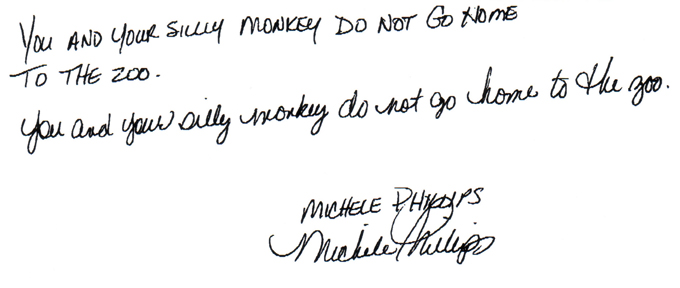 YOU AND YOUR SILLY MONKEY DO NOT GO HOME
TO THE ZOO.
you and your silly monkey do not go home to the zoo.
MICHELE PHILLIPS
Michele Phillips